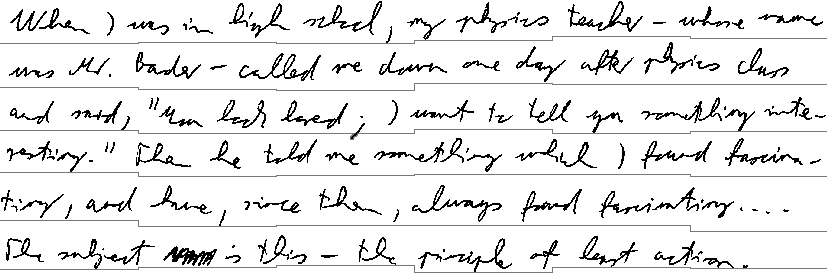 When I was in high school, my physics teacher - whose name
was Mr. Bader - called me down one day after physics class
and said, "You look bored; I want to tell you something inte-
resting." Then he told me something which I found fascina-
ting, and have, since then, always found fascinating....
The subject is this - the principle of least action.